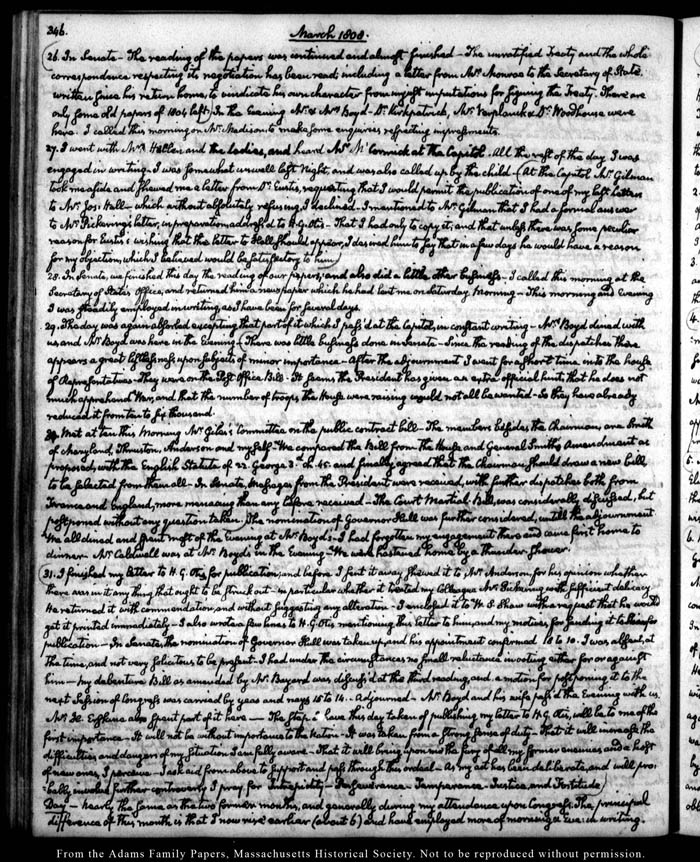 246.
March 1808.
26. In Senate - The reading of the papers was continued and almost finished - The unratified Treaty and the whole
correspondence respecting its negotiation has been read; including a letter from Mr. Monroe to the Secretary of State
written since his return home, to vindicate his own character from implications for signing the Treaty. There are
only some old papers of 1804 left) In the Evening Mr. & Mrs. Boyd - Dr. Kirkpatrick, Mr. Verplanck & Dr. Woodhouse were
here. I called this morning on Mr. Madison to make some enquiries respecting impressments.
27. I went with Mrs. Hellen and the ladies, and heard Mr. McCormick at the Capitol. All the rest of the day I was
engaged in writing. I was somewhat unwell last Night, and was also called up by the child - (At the Capitol Mr. Gilman
took me aside and shewed me a letter from Dr. Eustis, requesting that I would permit the publication of one of my last letters
to Mr. Jos: Hall - which without absolutely refusing, I declined. I mentioned to Mr. Gilman that I had a formal answer
to Mr. Pickering's letter, in preparation addressed to H. G. Otis - That I had only to copy it, and that unless there was some peculiar
reason for Eustis's wishing that the letter to Hall should appear, I desired him to say that in a few days he would have a reason
for my objection, which I believed would be satisfactory to him)
28. In Senate, we finished this day the reading of our papers, and also did a little other business - I called this morning at the
Secretary of State's Office, and returned him a newspaper which he had lent me on Saturday Morning - This morning and evening
I was steadily employed in writing, as I have been for several days.
29. This day was again absorbed, excepting that part of it which I pass'd at the Capitol, in constant writing - Mr. Boyd dined with
us, and Mrs. Boyd was here in the Evening - (There was little business done in Senate - Since the reading of the dispatches there
appears a great listlessness upon subjects of minor importance - After the adjournment I went for a short time into the house
of Representatives - They were on the Post Office Bill - It seems the President has given an extra official hint, that he does not
much apprehend War, and that the number of troops the House were raising would not all be wanted - So they have already
reduced it from ten to six thousand.
30. Met at ten this Morning Mr. Giles's Committee on the public contract bill - The members besides the Chairman, are Smith
of Maryland, Thruston, Anderson and myself - We compared the Bill from the House and General Smith's Amendment as
proposed, with the English Statute of 22. George 3. ch. 45. and finally agreed that the Chairman should draw a new bill
to be selected from them all - In Senate, Messages from the President were received, with further dispatches both from
France and England, more menacing than any before received - The Court Martial Bill, was considerably discussed, but
postponed without any question taken. The nomination of Governor Hull was further considered, untill the adjournment
We all dined and spent most of the evening at Mr. Boyd's - I had forgotten my engagement there and came first home to
dinner - Mr. Caldwell was at Mr. Boyd's in the Evening - We were hastened home by a thunder shower.
31. I finished my letter to H. G. Otis, for publication; and before I sent it away shewed it to Mr. Anderson, for his opinion whether
there was in it any thing that ought to be struck out - in particular whether it treated my Colleague Mr. Pickering with sufficient delicacy
He returned it with commendation, and without suggesting any alteration - I enclosed it to W. S. Shaw with a request that he would
get it printed immediately - I also wrote a few lines to H. G. Otis mentioning this letter to him, and my motives for sending it to this for
publication - In Senate, the nomination of Governor Hull was taken up and his appointment confirmed 18 to 10. I was absent, at
the time, and not very solicitous to be present - I had under the circumstances no small reluctance in voting either for or against
him - My debenture Bill as amended by Mr. Bayard was discuss'd at the third reading, and a motion for postponing it to the
next Session of Congress was carried by yeas and nays 15 to 14. Adjourned - Mr. Boyd and his wife pass'd the Evening with us.
Mr. spent part of it here - The Step I have this day taken of publishing my letter to H. G. Otis, will be to me of the
first importance - It will not be without importance to the Nation - It was taken from a strong sense of duty - That it will increase the
difficulties and dangers of my situation I am fully aware - That it will bring upon me the fury of all my former enemies and a host
of new ones, I perceive - I ask aid from above to support and pass through this ordeal - As my act has been deliberate, and will pro-
bably involve further controversy I pray for Intrepidity - Perseverance - Temperance - Justice, and Fortitude)
Day - nearly the same as the two former months, and generally during my attendance upon Congress. The principal
difference of this month is that I now rise earlier (about 6) and have employed more of mornings in writing.
From the Adams Family Papers, Massachusetts Historical Society. Not to be reproduced without permission.